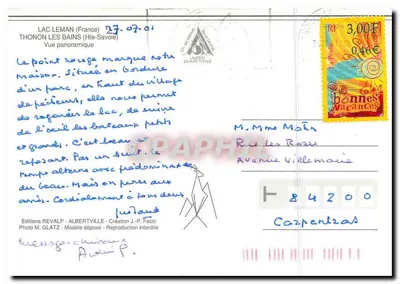 LAC LEMAN (France)
THONON LES BAINS (Hte-Savoie)
Vue panoramique
27.07.01
Le point rouge marque notre
maison. Située en bordure
d'un parc, en haut du village
de pêcheurs, elle nous permet
de regarder le lac, de suivre
de l'oeil les bateaux petits
et grands. C'est beau et
reposant. Pas un bruit. Le
temps alterne avec prédominance
du beau. Mais on pense aux
amis. Cordialement à tous deux
Editions REVALP - ALBERTVILLE - Création J.-P. Feco
Photo M. GLATZ - Modèle déposé - Reproduction interdite
RF
3,00F
0,46€
bonnes
vacances
M. Mme
Rue les
Avenue Villemarie
84200
Carpentras